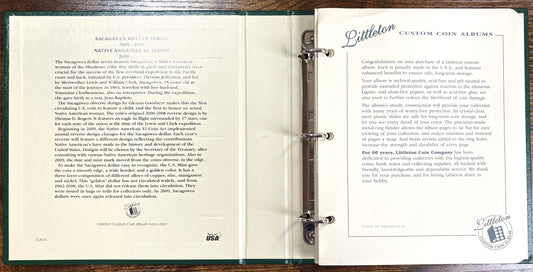 SACAGAWEA DOLLAR SERIES
2000-2008
NATIVE AMERICAN $1 SERIES
2009
The Sacagawea dollar series honors Sacagawea, a Native American
woman of the Shoshone tribe, her skills as guide and interpreter were
crucial for the success of the first overland expedition to the Pacific
coast and back, initiated by U.S. president Thomas Jefferson, and led
by Meriwether Lewis and William Clark. Sacagawea, 14 years old at
the start of the journey in 1804, traveled with her husband,
Toussaint Charbonneau, also an interpreter. During the expedition,
she gave birth to a son, Jean Baptiste.
The Sacagawea obverse design by Glenna Goodacre makes this the first
circulating U.S. coin to feature a child, and the first to honor an actual
Native American woman. The coin's original 2000-2008 reverse design is by
Thomas D. Rogers. It features an eagle in flight surrounded by 17 stars, one
for each state of the union at the time of the Lewis and Clark expedition.
Beginning in 2009, the Native American $1 Coin Act implemented
annual reverse design changes for the Sacagawea dollar. Each year's
reverse will feature a different design reflecting the contributions
Native Americans have made to the history and development of the
United States. Designs will be chosen by the Secretary of the Treasury, after
consulting with various Native American heritage organizations. Also in
2009, the date and mint mark moved from the coin's obverse, to the edge.
To make the Sacagawea dollar easy to recognize, the U.S. Mint gave
the coin a smooth edge, a wide border, and a golden color. It has a
three layer composition of different alloys of copper, zinc, manganese
and nickel. This "golden" dollar has not circulated widely, and from
2002-2008, the U.S. Mint did not release them into circulation. They
were issued in bags or rolls for collectors only. In 2009, Sacagawea
dollars were once again released into circulation.
Littleton Custom Coin Album
USA
Littleton
CUSTOM COIN ALBUMS
Congratulations on your purchase of a Littleton custom
album. Each is proudly made in the U.S.A., and features
enhanced benefits to ensure safe, long-term storage.
Your album is archival-quality, acid-free and pH neutral to
provide extended protection against reaction to the elements.
Lignin- and alum-free papers, as well as acid-free glue, are
also used to further reduce the likelihood of coin damage.
The album's sturdy construction will provide your collection
with many years of worry-free protection. Its crystal-clear,
inert plastic slides are safe for long-term coin storage, and
let you see every detail of your coins. The precision-made
metal-ring binder allows the album pages to lie flat for easy
viewing of your collection, and makes insertion and removal
of pages a snap. And brass eyelets added to the ring holes
increase the strength and durability of every page.
For 60 years, Littleton Coin Company has been
dedicated to providing collectors with the highest-quality
coins, bank notes and collecting supplies, all backed with
friendly, knowledgeable and dependable service. We thank
you for your purchase, and for letting Littleton share in
your hobby.
Littleton
CUSTOM COIN ALBUM